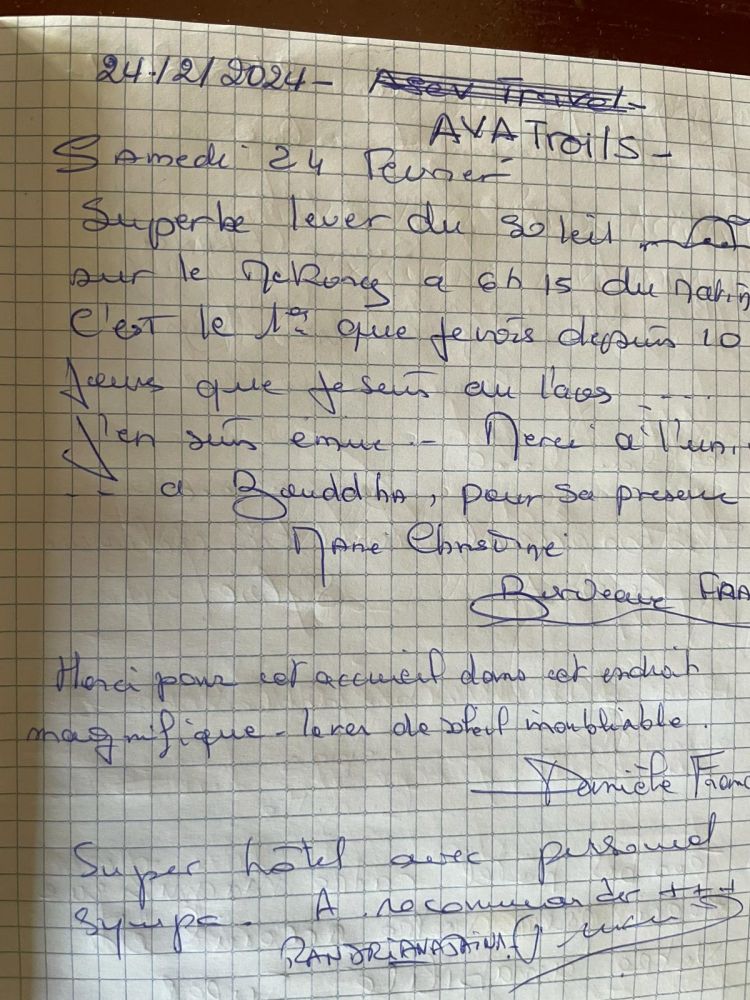 24/2/2024 - Asev Travel -
AVA Trails -
Samedi 24 Février
Superbe lever du soleil
sur le Mekong a 6h 15 du matin
C'est le 1er que je vois depuis 10
Jours que je suis au Laos ....
J'en suis émue - Merci à l'un..
-- a Bouddha, pour sa présence
Marie Christine
Bordeaux FRA
Merci pour cet accueil dans cet endroit
magnifique - lever de soleil inoubliable.
Danièle Franc
Super hôtel avec personnel
sympa. A recommander +++
RANDRIANAJAINA